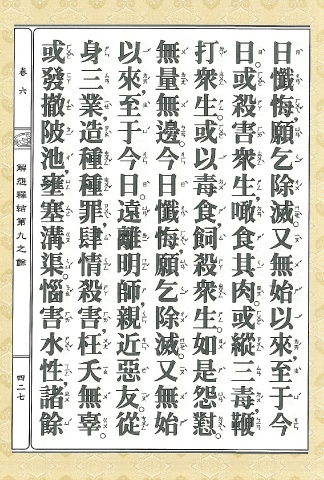 日懺悔，願乞除滅。又無始以來，至于今
日，或殺害衆生，噉食其肉；或縱三毒，鞭
打衆生；或以毒食，飼殺衆生。如是怨懟，
無量無邊。今日懺悔，願乞除滅。又無始
以來，至于今日，遠離明師，親近惡友。從
身三業，造種種罪。肆情殺害，枉夭無辜。
或發撤陂池，壅塞溝渠，惱害水性，諸餘
卷六
解怨釋結第九之餘
四二七